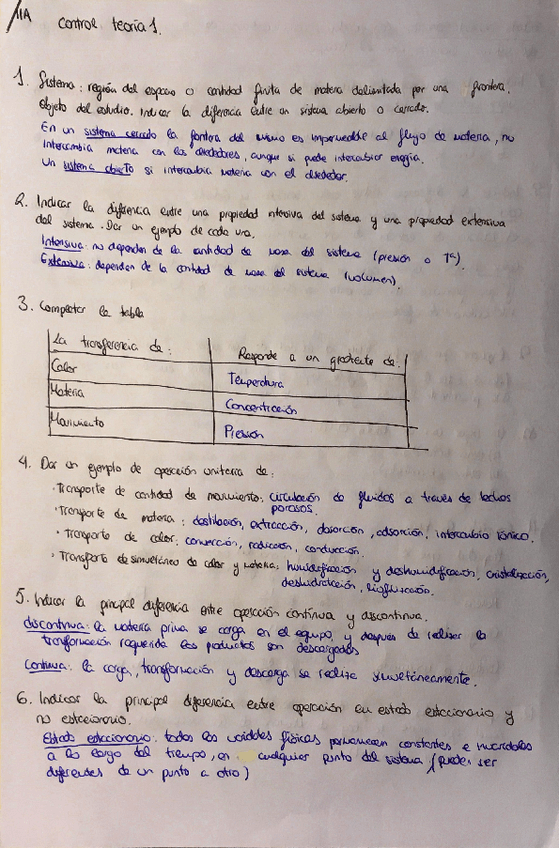 11A
Control teoría 1.
1. Sistema: región del espacio o cantidad finita de materia delimitada por una frontera.
Objeto del estudio. Indicar la diferencia entre un sistema abierto o cerrado.
En un sistema cerrado la frontera del mismo es impermeable al flujo de materia, no
intercambia materia con los alrededores, aunque si puede intercambiar energía.
Un sistema abierto si intercambia materia con el alrededor.
2. Indicar la diferencia entre una propiedad intensiva del sistema y una propiedad extensiva
del sistema. Dar un ejemplo de cada una.
Intensiva: no dependen de la cantidad de masa del sistema (presión o Tª)
Extensiva: dependen de la cantidad de masa del sistema (volumen).
3. Completar la tabla
La transferencia de: Responde a un gradiente de:
Calor Temperatura
Materia Concentración
Movimiento Presión
4. Dar un ejemplo de operación unitaria de:
· Transporte de cantidad de movimiento: circulación de fluidos a través de lechos
porosos.
· Transporte de materia: destilación, extracción, absorción, adsorción, intercambio iónico.
· Transporte de calor: convección, radiación, conducción.
· Transporte de simultáneo de calor y materia: humidificación y deshumidificación, cristalización,
deshidratación, liofilización.
5. Indicar la principal diferencia entre operación continua y discontinua.
discontinua: la materia prima se carga en el equipo, y después de realizar la
transformación requerida los productos son descargados
Continua: la carga, transformación y descarga se realiza simultáneamente.
6. Indicar la principal diferencia entre operación en estado estacionario y
no estacionario.
Estado estacionario: todas las variables físicas permanecen constantes e invariables
a lo largo del tiempo, en cualquier punto del sistema (pueden ser
diferentes de un punto a otro)